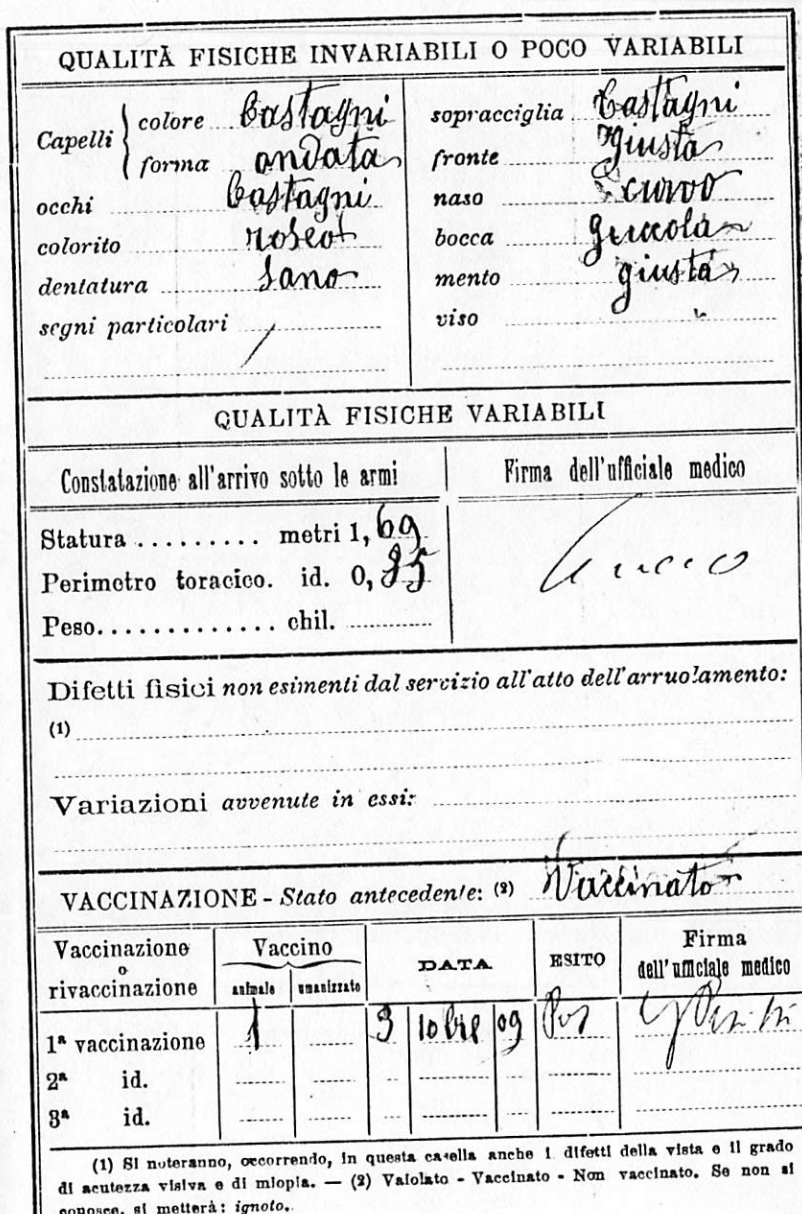 QUALITÀ FISICHE INVARIABILI O POCO VARIABILI
Capelli
colore Castagni
forma ondata
occhi Castagni
colorito roseo
dentatura sano
segni particolari /
sopracciglia Castagni
fronte giusta
naso curvo
bocca piccola
mento giusta
viso "
QUALITÀ FISICHE VARIABILI
Constatazione all'arrivo sotto le armi
Firma dell'ufficiale medico
Statura .......... metri 1, 69
Perimetro toracico. id. 0, 85
Peso............. chil.
Difetti fisici non esimenti dal servizio all'atto dell'arruolamento:
(1)
Variazioni avvenute in essi:
VACCINAZIONE - Stato antecedente: (2) Vaccinato
Vaccinazione o rivaccinazione
Vaccino
animale umanizzato
DATA
ESITO
Firma dell'ufficiale medico
1ª vaccinazione 1 3 10bre 09 Pos
2ª id.
3ª id.
(1) Si noteranno, occorrendo, in questa casella anche i difetti della vista e il grado
di acutezza visiva e di miopia. — (2) Vaiolato - Vaccinato - Non vaccinato. Se non si
conosce, si metterà: ignoto.